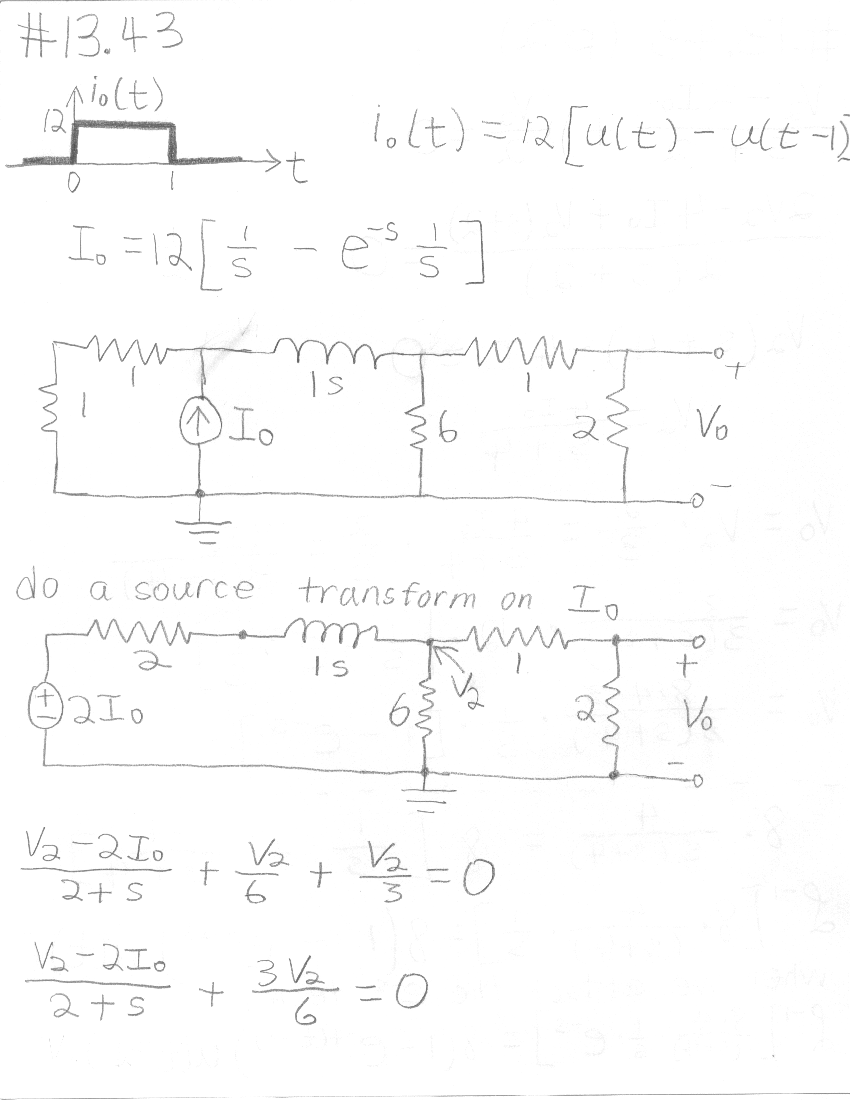 #13.43
i₀(t)
12
0 1 t
i₀(t) = 12[u(t) - u(t-1)]
I₀ = 12[1/s - e⁻ˢ 1/s]
1 1s 1
1 I₀ 6 2 V₀
+
-
do a source transform on I₀
2 1s 1
+
-
2I₀ 6 V₂ 2 V₀
+
-
(V₂-2I₀)/(2+s) + V₂/6 + V₂/3 = 0
(V₂-2I₀)/(2+s) + 3V₂/6 = 0